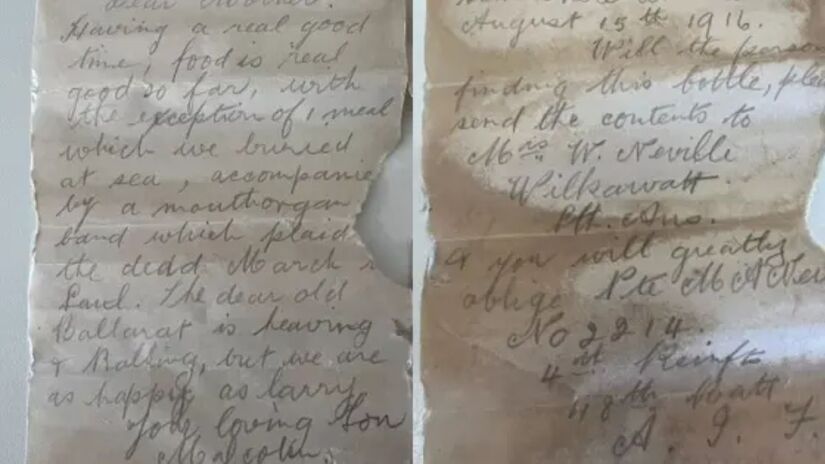 Dear Mother.
Having a real good
time, food is real
good so far, with
the exception of 1 meal
which we buried
at sea, accompanie
by a mouthorgan
band which plaid
the dedd March
Saul. The dear old
Ballarat is heaving
& Rolling, but we are
as happy as larry
Your loving Son
Malcolm.
August 15th 1916.
Will the person
finding this bottle, plea
send the contents to
Mrs W. Neville
Wilkawatt.
Sth. Aus.
& you will greatly
oblige Pte M A Nev
No 2214.
4th Reinft
48th Batt
A. I. F.